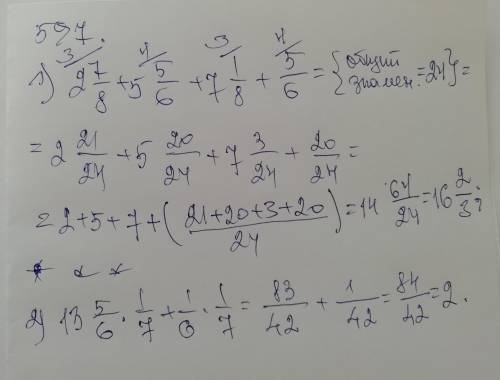 597.
1) 2 7/8 + 5 5/6 + 7 1/8 + 5/6 = {общий знамен. = 24} =
= 2 21/24 + 5 20/24 + 7 3/24 + 20/24 =
= 2+5+7+((21+20+3+20)/24) = 14 64/24 = 16 2/3;
2) 13 5/6 · 1/7 + 1/6 · 1/7 = 83/42 + 1/42 = 84/42 = 2.